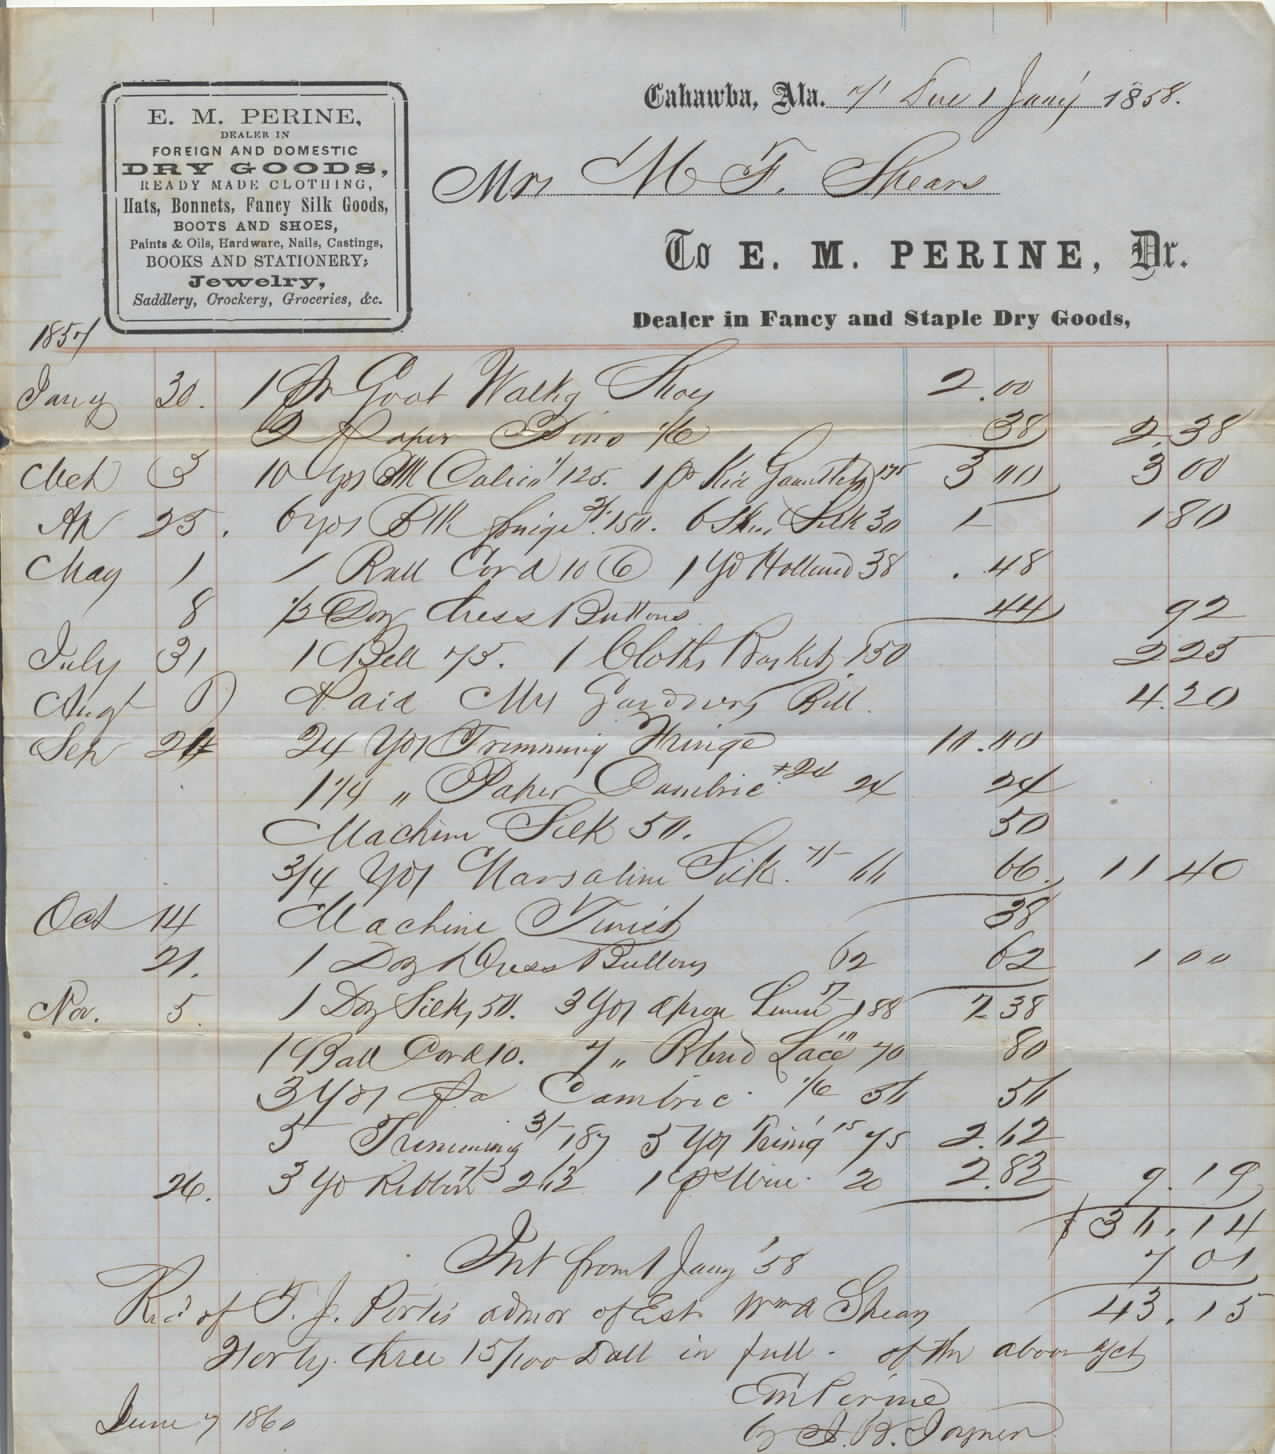 E. M. PERINE,
DEALER IN
FOREIGN AND DOMESTIC
DRY GOODS,
READY MADE CLOTHING,
Hats, Bonnets, Fancy Silk Goods,
BOOTS AND SHOES,
Paints & Oils, Hardware, Nails, Castings,
BOOKS AND STATIONERY;
Jewelry,
Saddlery, Crockery, Groceries, &c.
Cahawba, Ala. Due 1 Jany 1858.
Mrs M F. Shears
To E. M. PERINE, Dr.
Dealer in Fancy and Staple Dry Goods,
1857
Jany 30. 1 Pr Goat Walkg Shoes 2.00
2 Paper Pins 38 2.38
Mch 3 10 Yds Calico 125. 1 pr Kid Gauntlets 175 3 00 3 00
Ap 25. 6 yds Blk fringe 150. 6 Skns Silk 30 1 80
May 1 1 Ball Cord 10 1 Yd Holland 38 .48
8 1/2 Doz dress Buttons 44 92
July 31 1 Bell 75. 1 Cloths Basket 150 2 25
Augt Paid Mrs Gardners Bill. 4.20
Sep 24 24 Yds Trimming Fringe 10.00
1 1/4 " Paper Cambric 24 24
Machine Silk 50. 50
3/4 Yds Marsaline Silk. 66 66. 11 40
Oct 14 Machine Twist 38
21. 1 Doz Dress Buttons 62 62 1 00
Nov. 5 1 Doz Silk, 50. 3 Yds apron Linen 188 2 38
1 Ball Cord 10. 7 " Blond Lace 70 80
3 Yds Pa Cambric. 56 56
5 Trimming 3/- 187 5 Yds 15 75 2.62
26. 3 Yd Ribbon 262 1 ps Wire 20 2.83 9.19
$36.14
Int from 1 Jany '58 7 01
43.15
Recd of T. J. Portis admor of Est Wm A Shears
Forty three 15/100 Doll in full. of the above act
E M Perine
June 7 1860 by J. B. Joyner